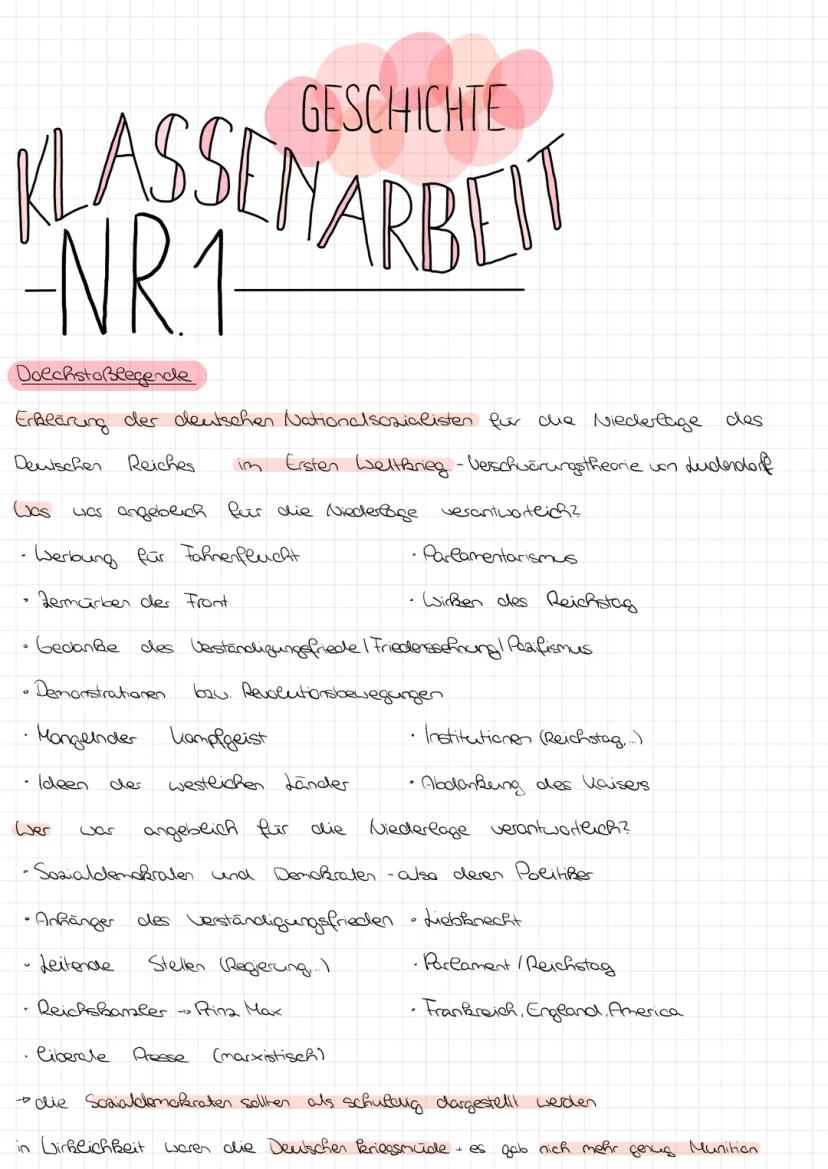 GESCHICHTE
KLASSENARBEIT
-NR.1
Dolchstoßlegende
Erklärung der deutschen Nationalsozialisten für die Niederlage des
Deutschen Reiches im Ersten Weltkrieg - Verschwörungstheorie von Ludendorf
Was war angeblich für die Niederlage verantwortlich?
· Werbung für Fahnenflucht · Parlamentarismus
· Zermürben der Front · Wirken des Reichstag
· Gedanke des Verständigungsfriede / Friedenssehnung / Pazifismus
· Demonstrationen bzw. Revolutionsbewegungen
· Mangelnder Kampfgeist · Institutionen (Reichstag,..)
· Ideen der westlichen Länder · Abdankung des Kaisers
Wer war angeblich für die Niederlage verantwortlich?
· Sozialdemokraten und Demokraten - also deren Politiker
· Anhänger des Verständigungsfrieden · Liebknecht
· Leitende Stellen (Regierung..) · Parlament / Reichstag
· Reichskanzler → Prinz Max · Frankreich, England, America
· liberale Presse (marxistisch)
→ die Sozialdemokraten sollten als schuldig dargestellt werden
in Wirklichkeit waren die Deutschen kriegsmüde + es gab nich mehr genug Munition